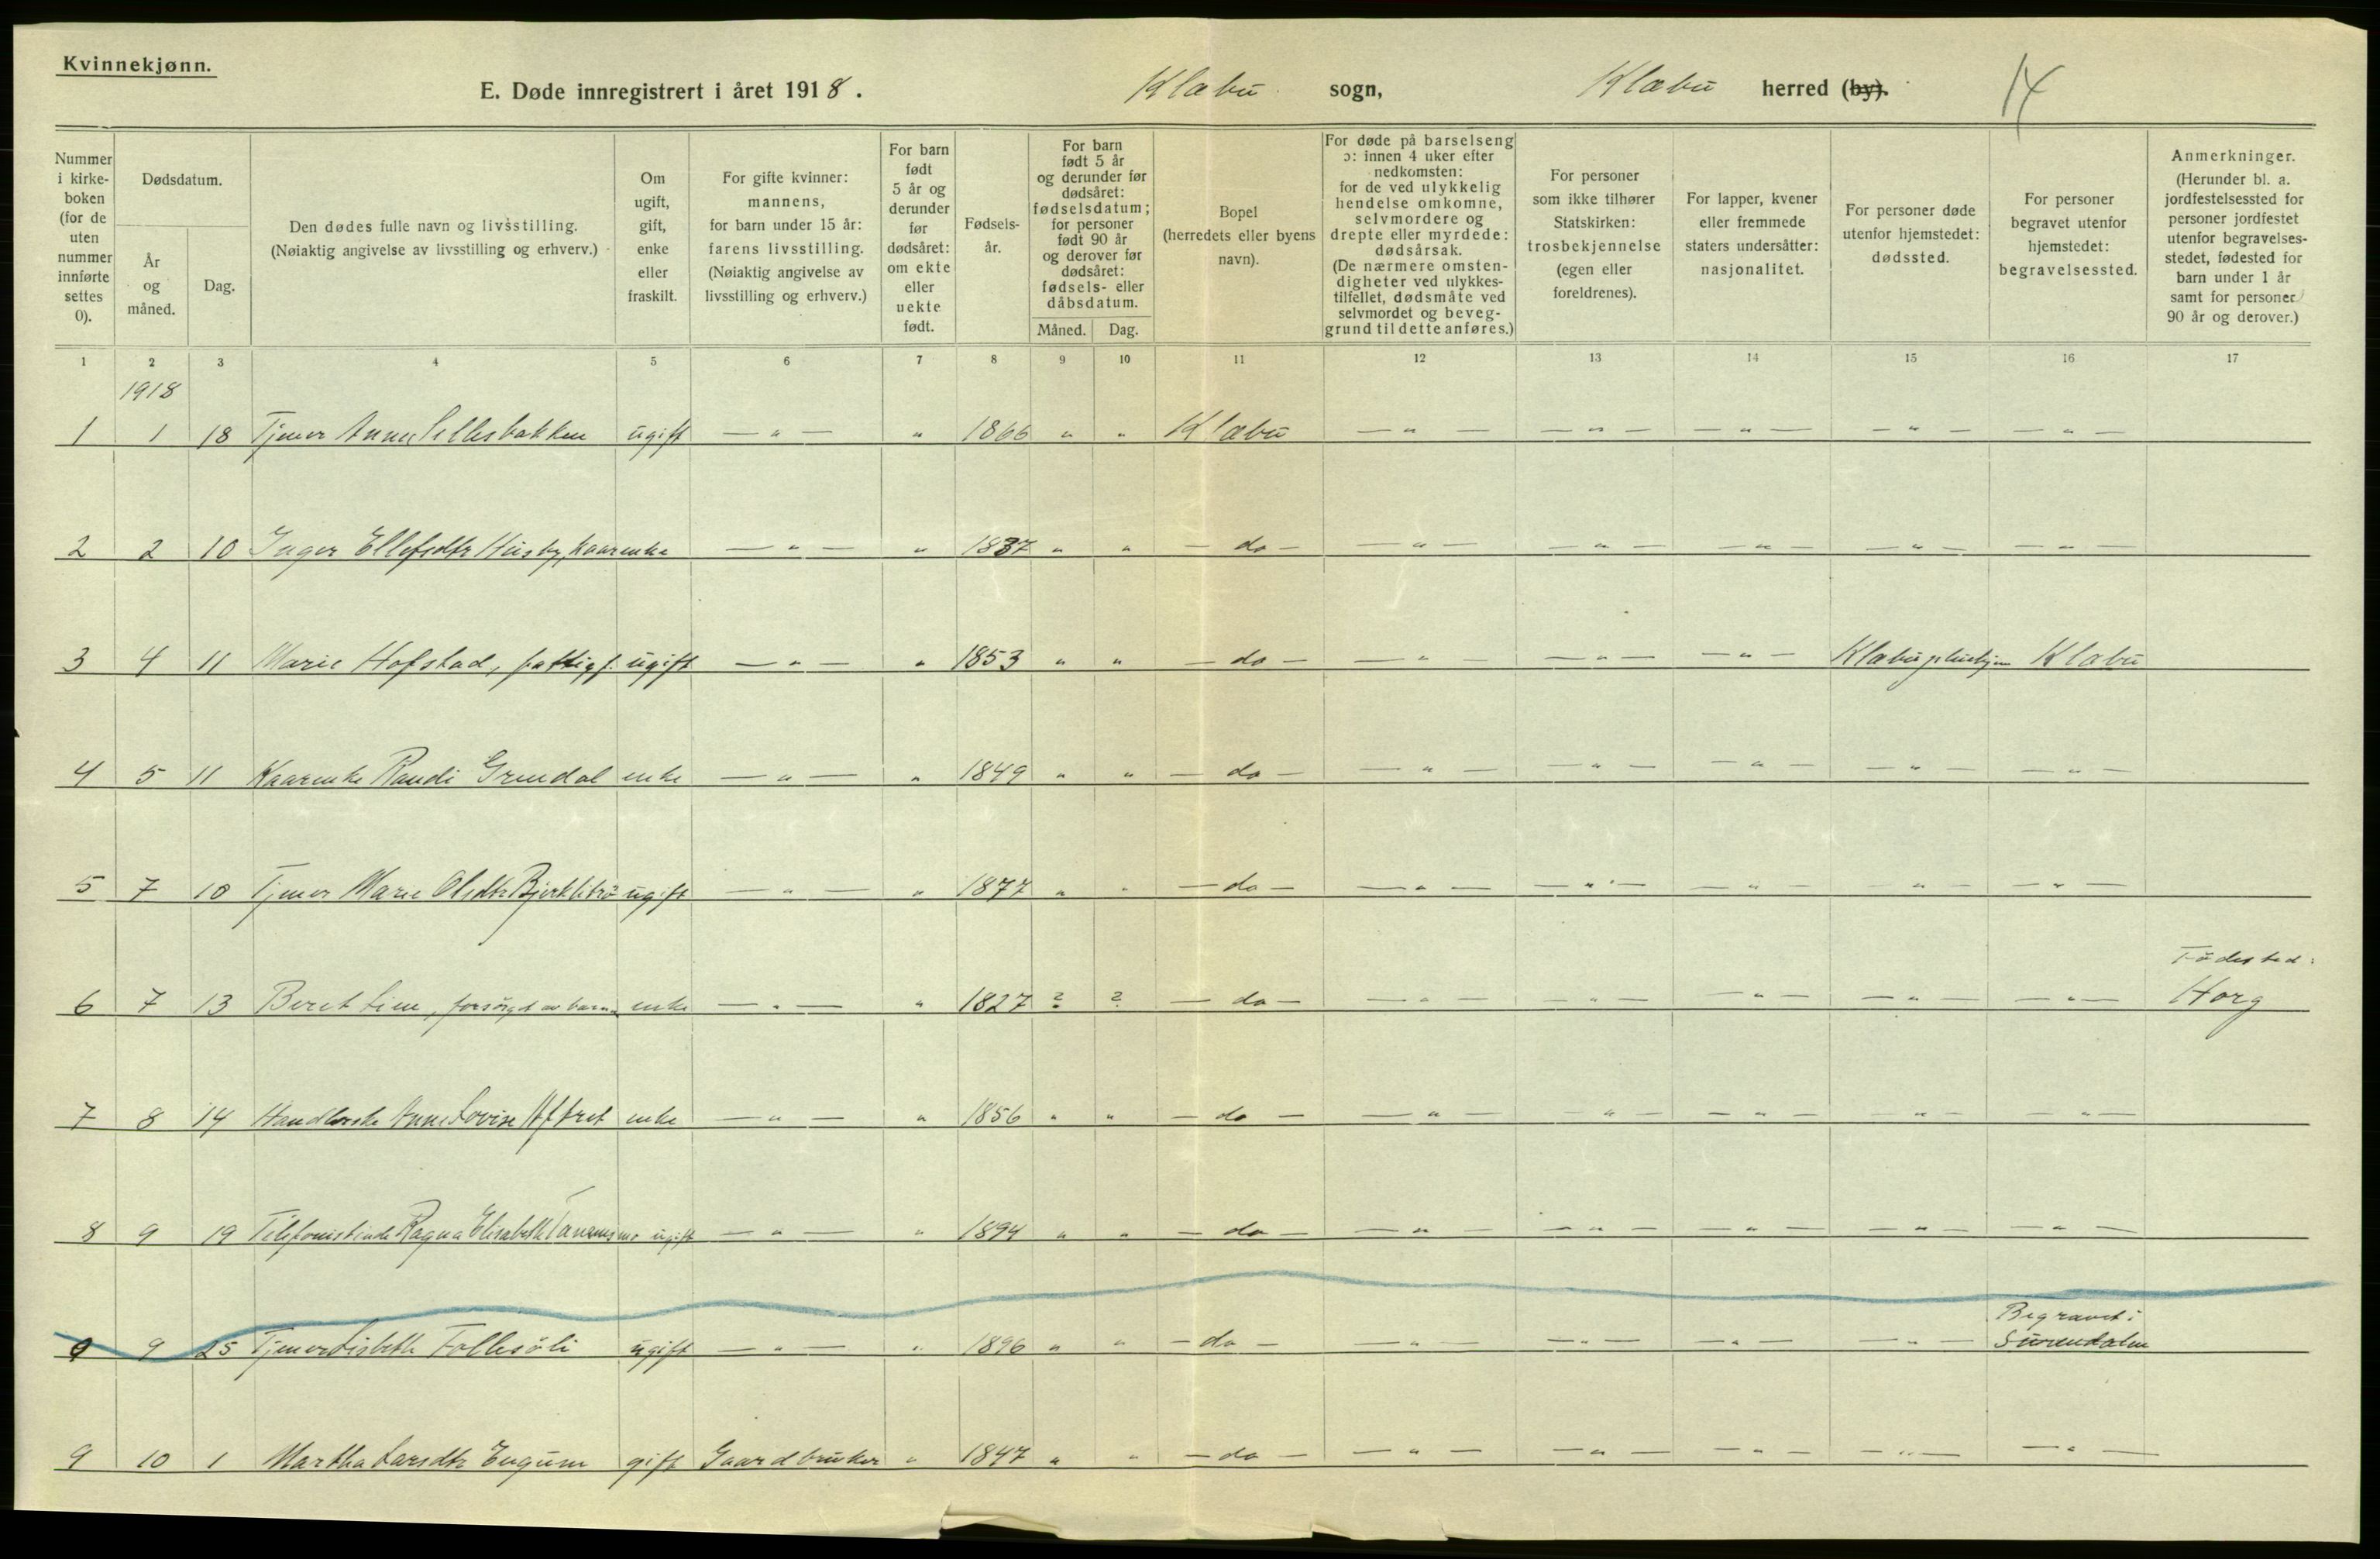 Kvinnekjønn.
E. Døde innregistrert i året 1918. Klæbu sogn, Klæbu herred (by). 14
Nummer i kirke- boken (for de uten nummer innførte settes 0).
Dødsdatum.
År og måned.
Dag.
Den dødes fulle navn og livsstilling.
(Nøiaktig angivelse av livsstilling og erhverv.)
Om ugift, gift, enke eller fraskilt.
For gifte kvinner: mannens, for barn under 15 år: farens livsstilling. (Nøiaktig angivelse av livsstilling og erhverv.)
For barn født 5 år og derunder før dødsåret: om ekte eller uekte født.
Fødsels- år.
For barn født 5 år og derunder før dødsåret: fødselsdatum; for personer født 90 år og derover før dødsåret: fødsels- eller dåbsdatum.
Måned. Dag.
Bopel (herredets eller byens navn).
For døde på barselseng ɔ: innen 4 uker efter nedkomsten: for de ved ulykkelig hendelse omkomne, selvmordere og drepte eller myrdede: dødsårsak. (De nærmere omsten- digheter ved ulykkes- tilfellet, dødsmåte ved selvmordet og beveg- grund til dette anføres.)
For personer som ikke tilhører Statskirken: trosbekjennelse (egen eller foreldrenes).
For lapper, kvener eller fremmede staters undersåtter: nasjonalitet.
For personer døde utenfor hjemstedet: dødssted.
For personer begravet utenfor hjemstedet: begravelsessted.
Anmerkninger. (Herunder bl. a. jordfestelsessted for personer jordfestet utenfor begravelses- stedet, fødested for barn under 1 år samt for personer 90 år og derover.)
1 2 3 4 5 6 7 8 9 10 11 12 13 14 15 16 17
1918
1 1 18 Tjener Anne ugift — " — " 1866 " " Klæbu — " — — " — — " — — " — — " —
2 2 10 Inger Ellefsdtr Husby, kaarenke — " — " 1837 " " — do — — " — — " — — " — — " — — " —
3 4 11 Marie Hofstad, fattigf. ugift — " — " 1853 " " — do — — " — — " — — " — Klæbu pleiehjem Klæbu
4 5 11 Kaarenke Randi Grendal enke — " — " 1849 " " — do — — " — — " — — " — — " — — " —
5 7 10 Tjener Marie Olsdtr ugift — " — " 1877 " " — do — — " — — " — — " — — " — — " —
Födested:
6 7 13 Beret Lien, forsörget av barn enke — " — " 1827 ? ? — do — — " — — " — — " — — " — — " — Horg
7 8 14 Handlerske Anne Lovise enke — " — " 1856 " " — do — — " — — " — — " — — " — — " —
8 9 19 Telefonistinde Ragna Elisabeth ugift — " — " 1894 " " — do — — " — — " — — " — — " — — " —
Begravet i
0 9 25 Tjener Lisbeth Follesöli ugift — " — " 1896 " " — do — — " — — " — — " — — " — Surendalen
9 10 1 Martha Larsdtr Engum gift Gaardbruker " 1847 " " — do — — " — — " — — " — — " — — " —